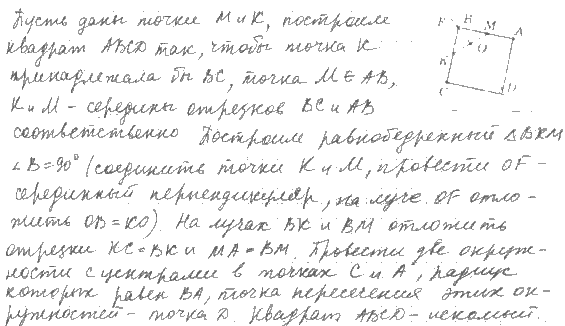 Пусть даны точки M и K, построим
квадрат ABCD так, чтобы точка K
принадлежала бы BC, точка M ∈ AB,
K и M - середины отрезков BC и AB
соответственно Построим равнобедренный △BKM
∠B=90° (соединить точки K и M, провести OF -
серединный перпендикуляр, на луче OF отло-
жить OB = KO). На лучах BK и BM отложить
отрезки KC = BK и MA = BM. Провести две окруж-
ности с центрами в точках C и A, радиус
которых равен BA, точка пересечения этих ок-
ружностей - точка D. Квадрат ABCD - искомый.
F B M A
O
K
C D